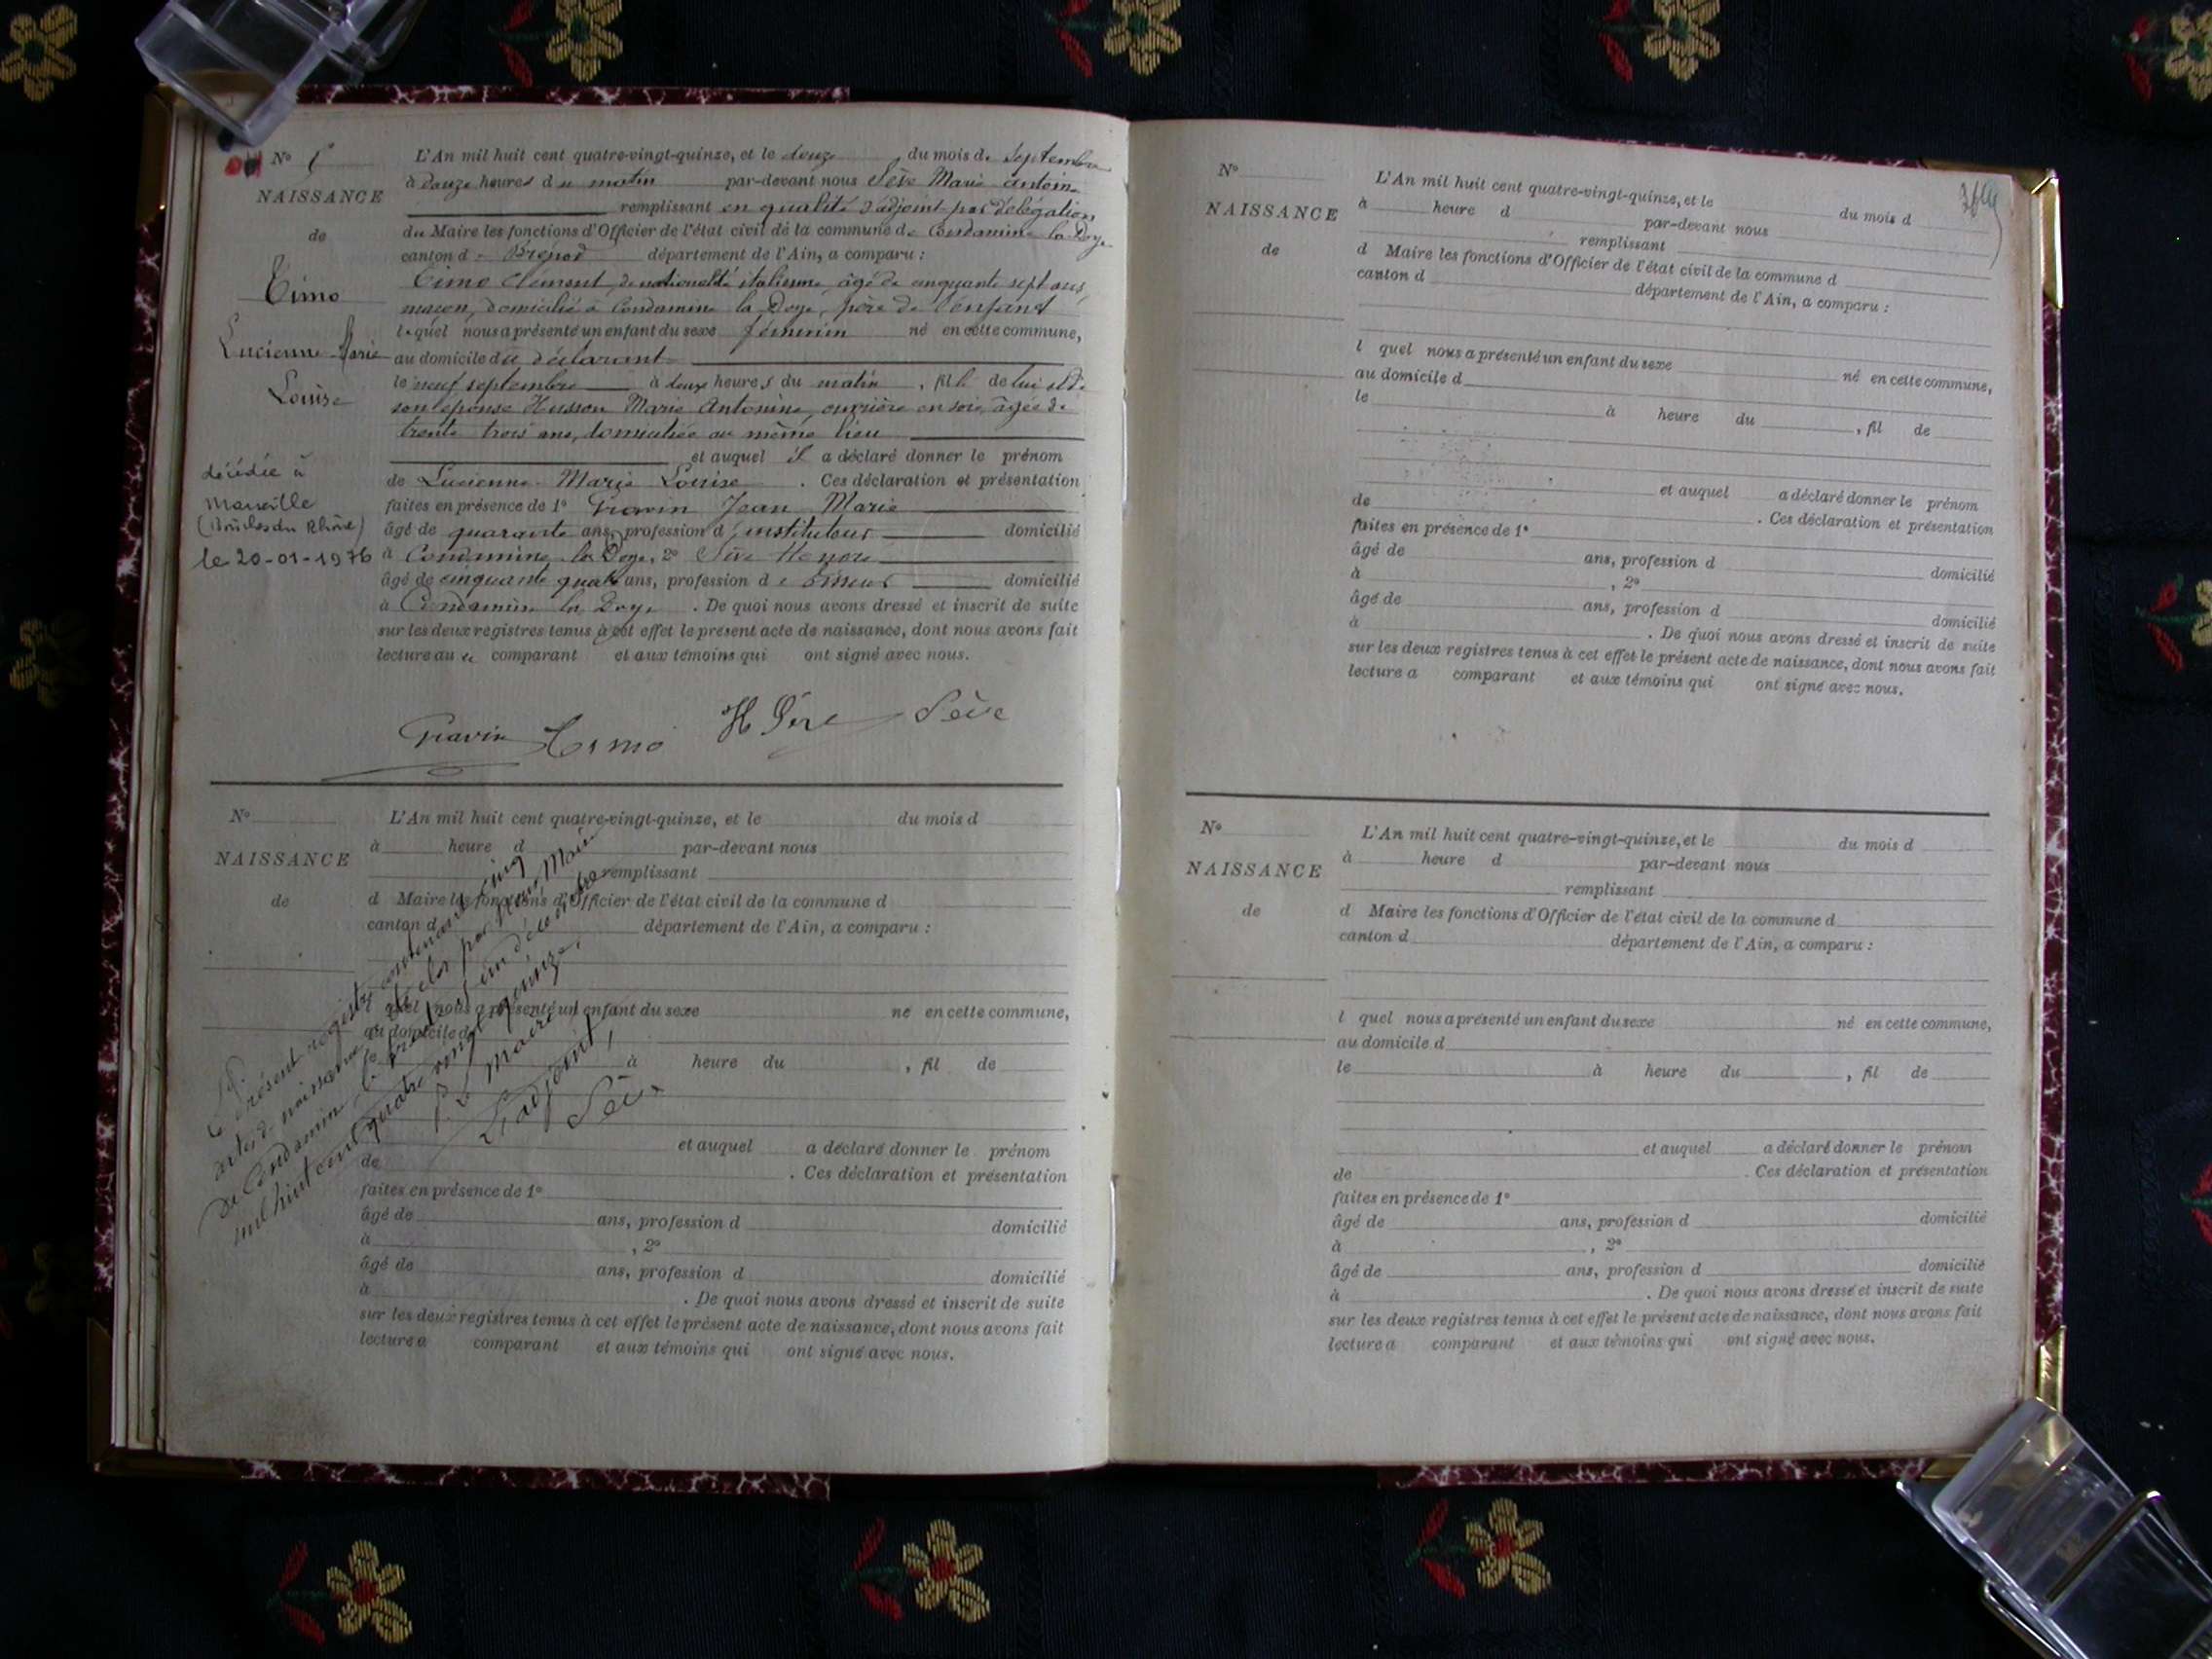 N° 5
NAISSANCE
de
Timo
Lucienne Marie
Louise
décédée à
Marseille
(Bouches du Rhône)
le 20-01-1976
L'An mil huit cent quatre-vingt-quinze, et le douze du mois de Septembre
à douze heures du matin par-devant nous Sève Marie Antoine
remplissant en qualité d'adjoint par délégation
du Maire les fonctions d'Officier de l'état civil de la commune de Condamine la Doye
canton de Brénod département de l'Ain, a comparu :
Timo Clément, de nationalité italienne, âgé de cinquante sept ans,
maçon, domicilié à Condamine la Doye, père de l'enfant
lequel nous a présenté un enfant du sexe féminin né en cette commune,
au domicile du déclarant
le neuf septembre à douze heures du matin, fille de lui et de
son épouse Husson Marie Antonine, ouvrière en soie, âgée de
trente trois ans, domiciliée au même lieu
et auquel il a déclaré donner le prénom
de Lucienne Marie Louise. Ces déclaration et présentation
faites en présence de 1° Gravin Jean Marie
âgé de quarante ans, profession d'instituteur domicilié
à Condamine la Doye, 2° Sève Honoré
âgé de cinquante quatre ans, profession de domicilié
à Condamine la Doye. De quoi nous avons dressé et inscrit de suite
sur les deux registres tenus à cet effet le présent acte de naissance, dont nous avons fait
lecture au comparant et aux témoins qui ont signé avec nous.
Gravin Timo H Sève Sève
N°
NAISSANCE
de
L'An mil huit cent quatre-vingt-quinze, et le du mois d
à heure d par-devant nous
remplissant
d Maire les fonctions d'Officier de l'état civil de la commune d
canton d département de l'Ain, a comparu :
l quel nous a présenté un enfant du sexe né en cette commune,
au domicile d
le à heure du , fil de
et auquel a déclaré donner le prénom
de . Ces déclaration et présentation
faites en présence de 1°
âgé de ans, profession d domicilié
à , 2°
âgé de ans, profession d domicilié
à . De quoi nous avons dressé et inscrit de suite
sur les deux registres tenus à cet effet le présent acte de naissance, dont nous avons fait
lecture a comparant et aux témoins qui ont signé avec nous.
Le Présent registre contenant cinq
actes de naissance a été clos par Nous Maire
de Condamine, le trente et un décembre
mil huit cent quatre vingt quinze.
P. le Maire
L'adjoint,
Sève
N°
NAISSANCE
de
L'An mil huit cent quatre-vingt-quinze, et le du mois d
à heure d par-devant nous
remplissant
d Maire les fonctions d'Officier de l'état civil de la commune d
canton d département de l'Ain, a comparu :
l quel nous a présenté un enfant du sexe né en cette commune,
au domicile d
le à heure du , fil de
et auquel a déclaré donner le prénom
de . Ces déclaration et présentation
faites en présence de 1°
âgé de ans, profession d domicilié
à , 2°
âgé de ans, profession d domicilié
à . De quoi nous avons dressé et inscrit de suite
sur les deux registres tenus à cet effet le présent acte de naissance, dont nous avons fait
lecture a comparant et aux témoins qui ont signé avec nous.
N°
NAISSANCE
de
L'An mil huit cent quatre-vingt-quinze, et le du mois d
à heure d par-devant nous
remplissant
d Maire les fonctions d'Officier de l'état civil de la commune d
canton d département de l'Ain, a comparu :
l quel nous a présenté un enfant du sexe né en cette commune,
au domicile d
le à heure du , fil de
et auquel a déclaré donner le prénom
de . Ces déclaration et présentation
faites en présence de 1°
âgé de ans, profession d domicilié
à , 2°
âgé de ans, profession d domicilié
à . De quoi nous avons dressé et inscrit de suite
sur les deux registres tenus à cet effet le présent acte de naissance, dont nous avons fait
lecture a comparant et aux témoins qui ont signé avec nous.